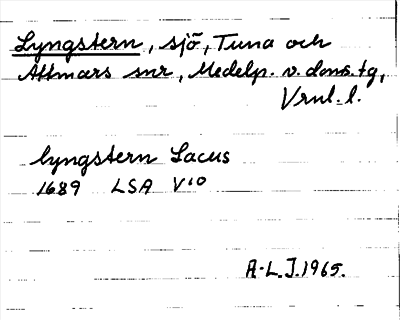 Lyngstern, sjö, Tuna och
Attmars snr, Medelp. v. doms. tg,
Vrnl. l.
lyngstern Lacus
1689 LSA V10
A-L.J. 1965.